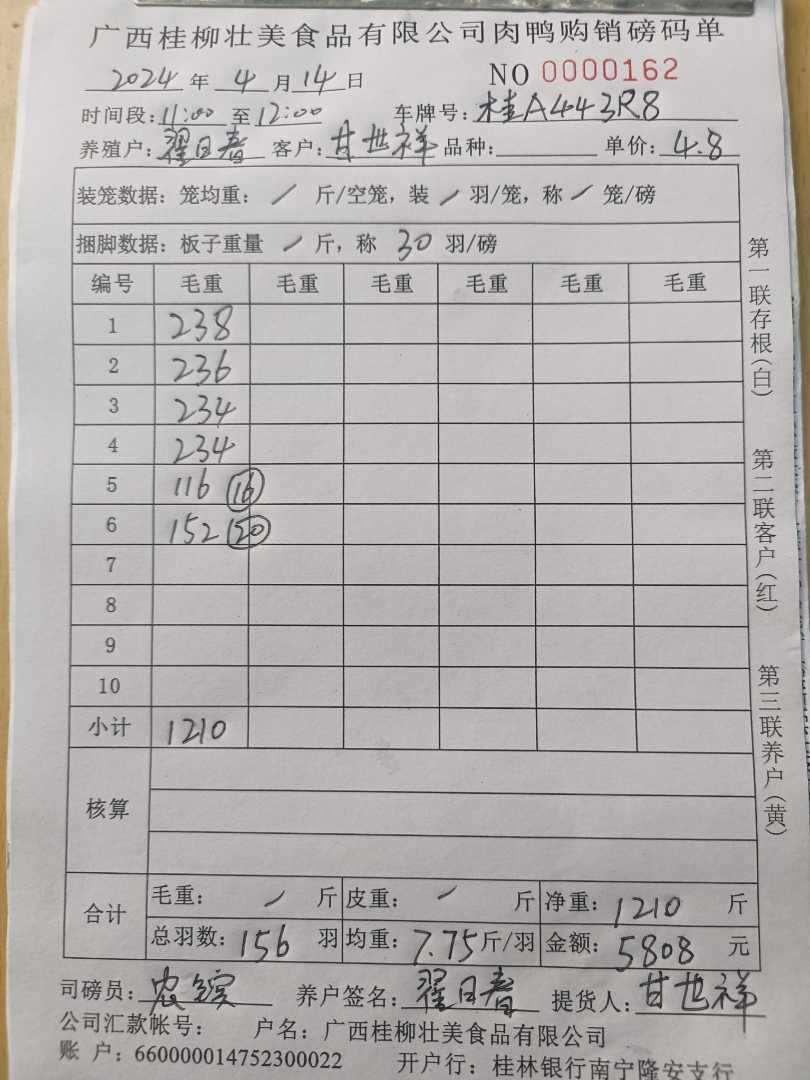 广西桂柳壮美食品有限公司肉鸭购销磅码单
2024 年 4 月 14 日 NO 0000162
时间段: 11:00 至 12:00 车牌号: 桂A443R8
养殖户: 翟日春 客户: 甘世祥 品种: 单价: 4.8
装笼数据: 笼均重: / 斤/空笼, 装 / 羽/笼, 称 / 笼/磅
捆脚数据: 板子重量 / 斤, 称 30 羽/磅
编号 毛重 毛重 毛重 毛重 毛重 毛重
1 238
2 236
3 234
4 234
5 116 (16)
6 152 (20)
7
8
9
10
小计 1210
核算
合计 毛重: / 斤 皮重: / 斤 净重: 1210 斤
总羽数: 156 羽 均重: 7.75 斤/羽 金额: 5808 元
司磅员: 农 养户签名: 翟日春 提货人: 甘世祥
公司汇款帐号: 户名: 广西桂柳壮美食品有限公司
账 户: 660000014752300022 开户行: 桂林银行南宁隆安支行
第一联存根(白) 第二联客户(红) 第三联养户(黄)